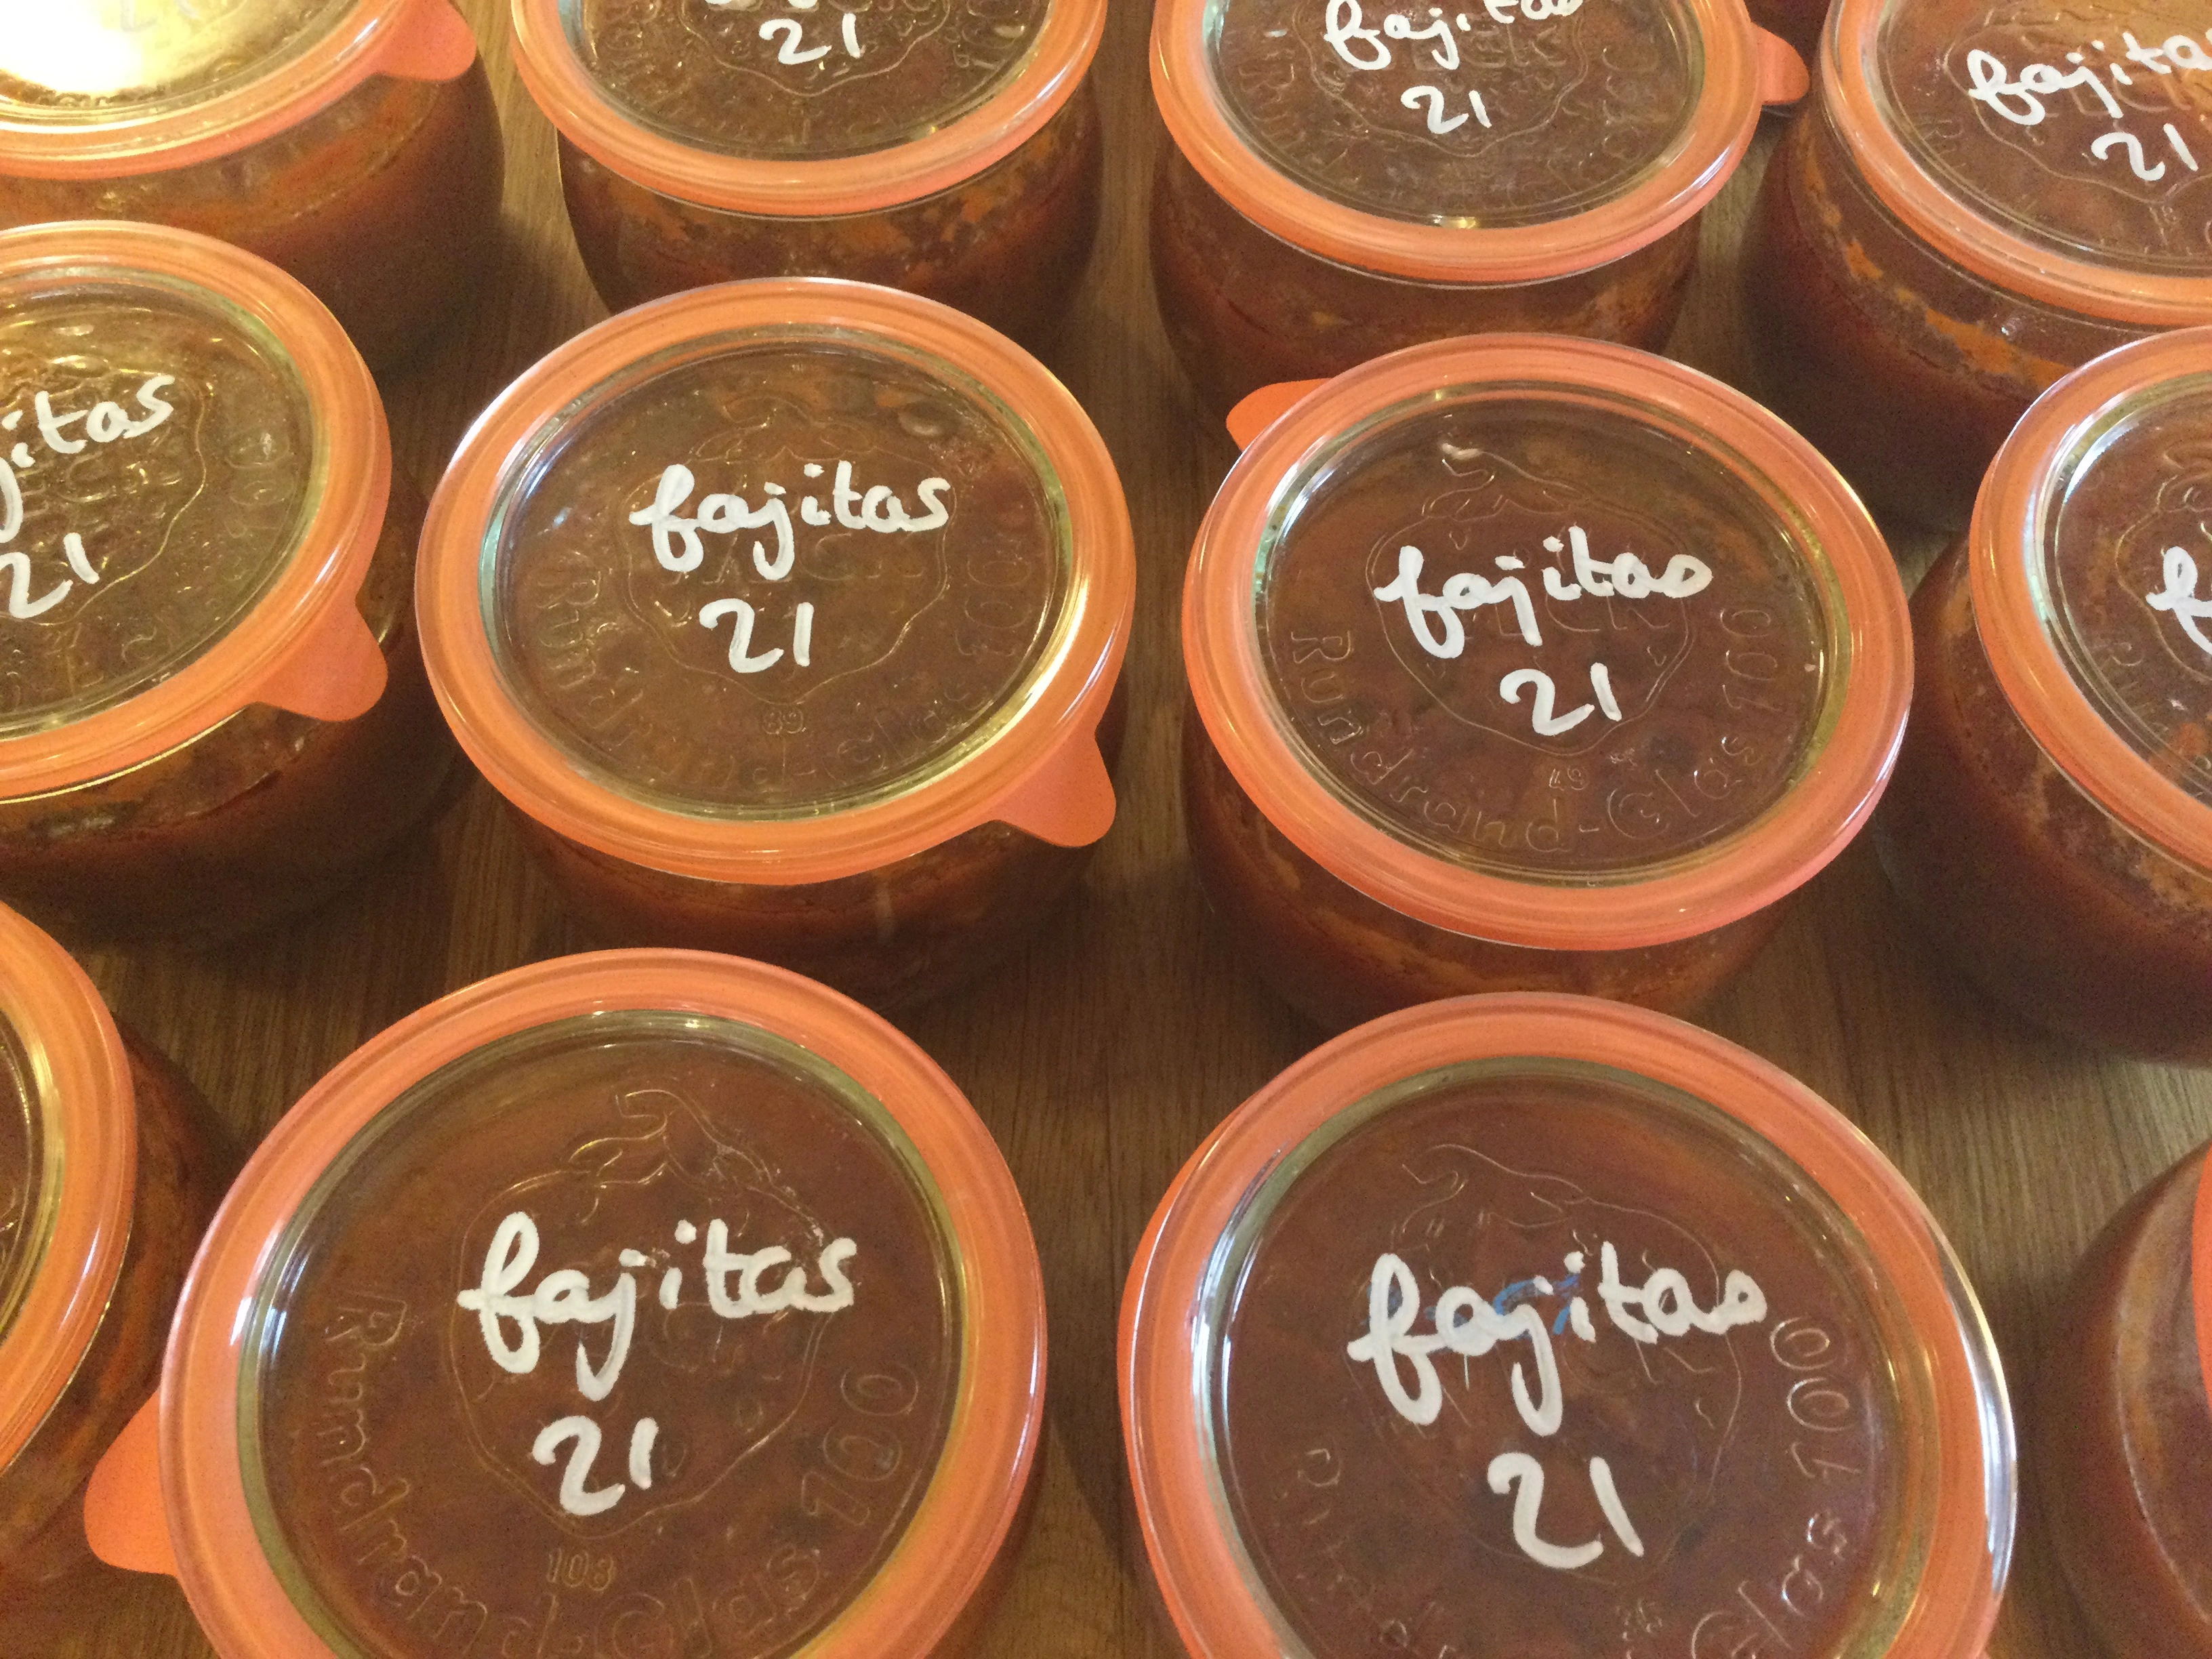 21
fajitas
21
fajitas
21
jitas
21
fajitas
21
Rundrand-Glas 100
89
fajitas
21
Rundrand-Glas 100
49
fajitas
21
Rundrand-Glas 100
108
fajitas
21
Glas 100